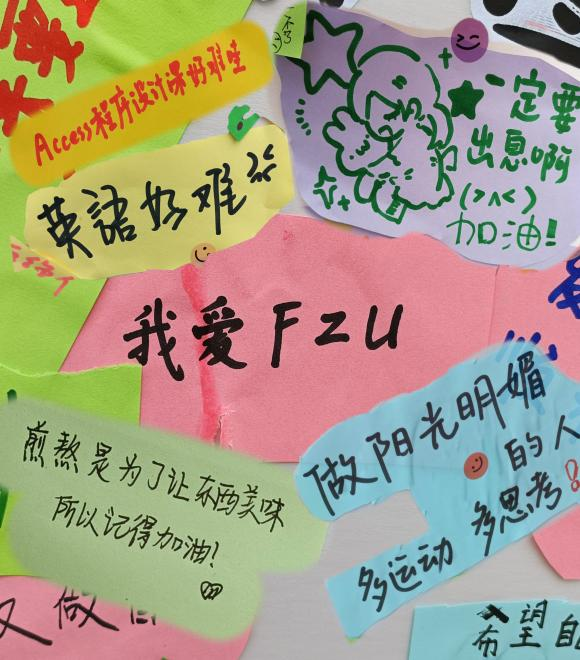 Access程序设计课好难哇
英語好难
一定要
出息啊
(>^<)
加油!
我爱FZU
煎熬是为了让东西美味
所以记得加油!
做阳光明媚
的人
多运动 多思考!!
又做自
希望自